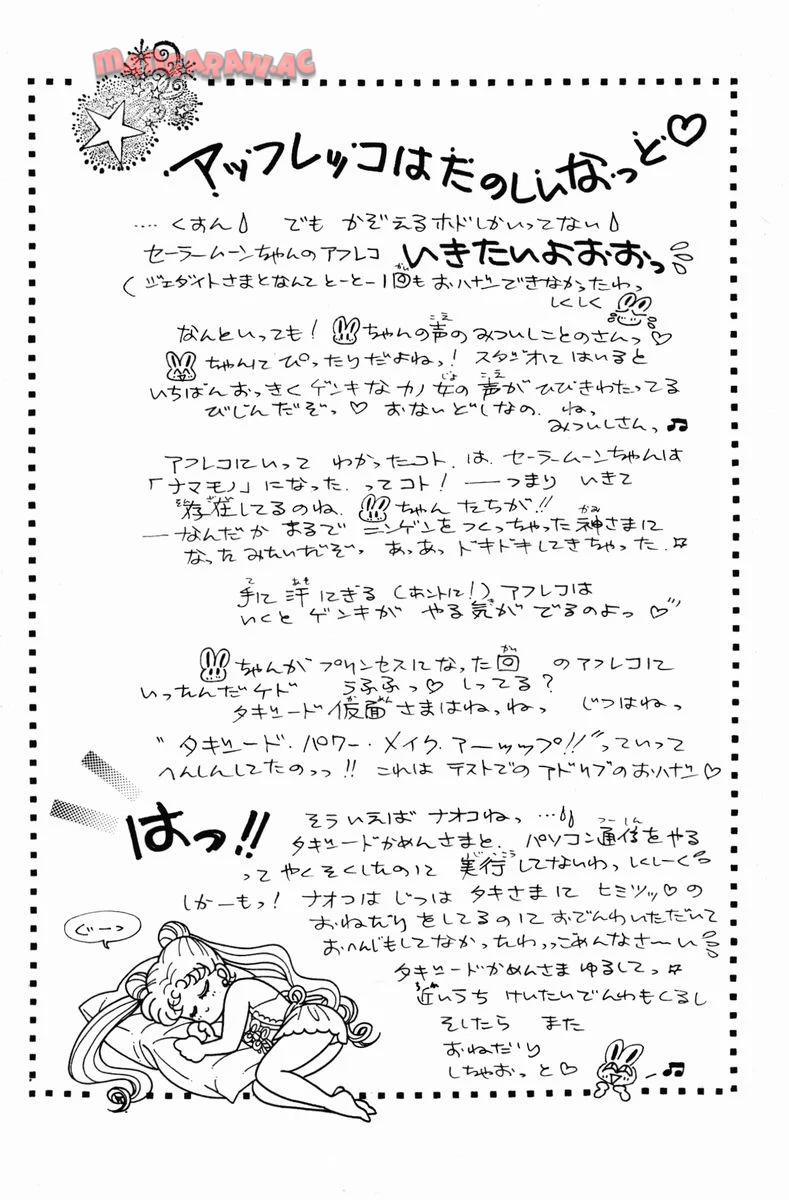 MANGARAW.AC
アッフレッコはたのしいなっと♡
‥‥くすん でも かぞえるホドしかいってない
セーラームーンちゃんのアフレコ いきたいよおおっ
(ジェダイトさまとなんて とーとー1回もおハナシできなかったわっ
しくしく
なんといっても! ちゃんの声のみついしことのさんっ♡
ちゃんにぴったりだよねっ! スタジオにはいると
いちばんおっきくゲンキなカノ女の声がひびきわたってる
びじんだぞっ♡ おないどしなの、ねっ
みついしさんっ♫
アフレコにいって わかったコト、は、セーラームーンちゃんは
「ナマモノ」になった、ってコト! ――つまり いきて
存在してるのね、 ちゃんたちが!!
――なんだか まるで ニンゲンをつくっちゃった神さまに
なったみたいだぞっ あっあっ ドキドキしてきちゃった☆
手に汗にぎる(ホントに!)アフレコは
いくと ゲンキが やる気が でるのよっ♡
ちゃんがプリンセスになった回 のアフレコに
いったんだケド うふふっ♡ しってる?
タキシード仮面さまはねっねっ じつはねっ
“タキシード・パワー・メイク・アーップ!!”っていって
へんしんしてたのっっ!! これは テストでのアドリブのおハナシ♡
はっ!! そういえば ナオコねっ …
タキシードかめんさまと、パソコン通信をやる
って やくそくしたのに 実行してないわっしくしーく
しかーもっ! ナオコは じつは タキさまに ヒミツッ♡の
おねだりをしてるのに おでんわいただいて
おへんじもしてなかったわっっごめんなさーい
タキシードかめんさま ゆるしてっ☆
近いうち けいたいでんわもくるし
そしたら また
おねだり
しちゃおっと♡
ぐーっ